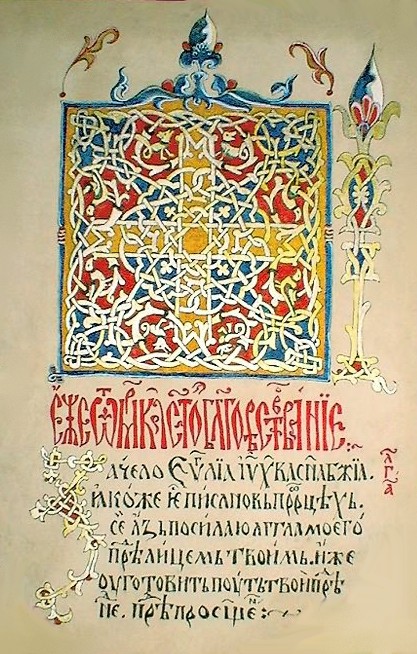 ЕЖЕ Ѿ МАРКА СТОЕ БЛГОВѢСТВОВАНЇЕ
ачело Єѵлїа Іѵ Хва сна бжїа.
Ꙗкоже є писано въ прⷪрцѣхь.
Се азь посилаю аггла моего
прѣⷣ лицемь твоимь. Иже
оуготовить поуть твои прѣ